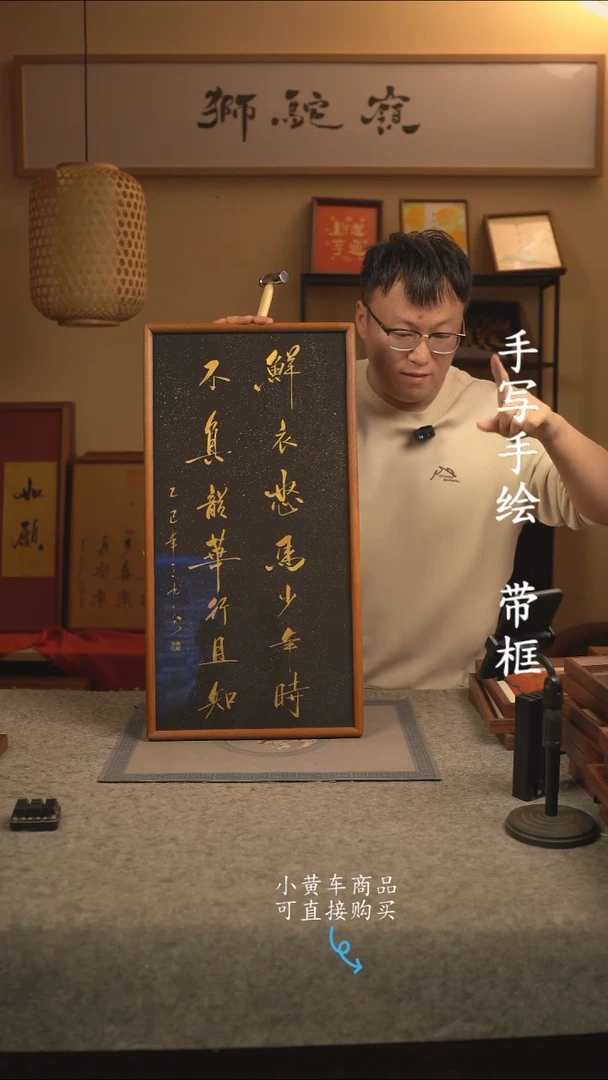 獅駝嶺
鮮衣怒馬少年時
不負韶華行且知
乙巳年
如願
手写手绘 带框
小黄车商品
可直接购买